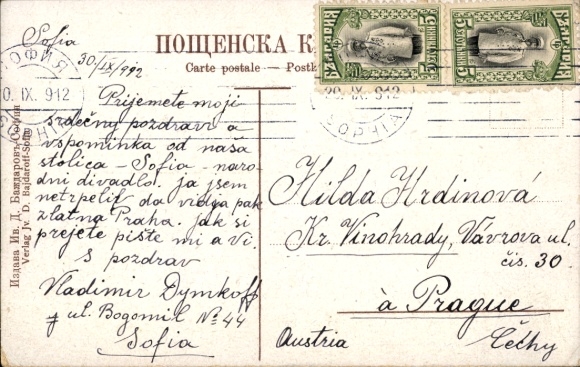 Sofia
30/IX/912
ПОЩЕНСКА К
Carte postale — Postk
Prijemete moji
srdečny pozdravi a
vspominka od naša
stolica – Sofia – naro-
dni divadlo. ja jsem
netrpeliv da vidja pak
zlatna Praha. jak si
prejete pište mi a Vi.
s pozdrav
Vladimir Dymkoff
ul. Bogomil № 44
Sofia
Издава Ив. Д. Баждаровъ, София
Verlag Jv. D. Bajdaroff-Sofia
СОФИЯ
30. IX. 912
SOPHIA
БЪЛГАРИЯ
5
БЪЛГАРИЯ
5
Hilda Hrdinová
Kr. Vinohrady, Vávrova ul.
čis. 30
à Prague
Austria
Čechy